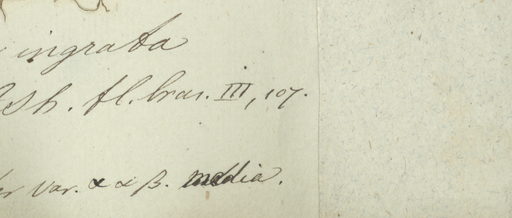 ingrata
Sh. fl. bras. III, 107.
var. α α β. media.